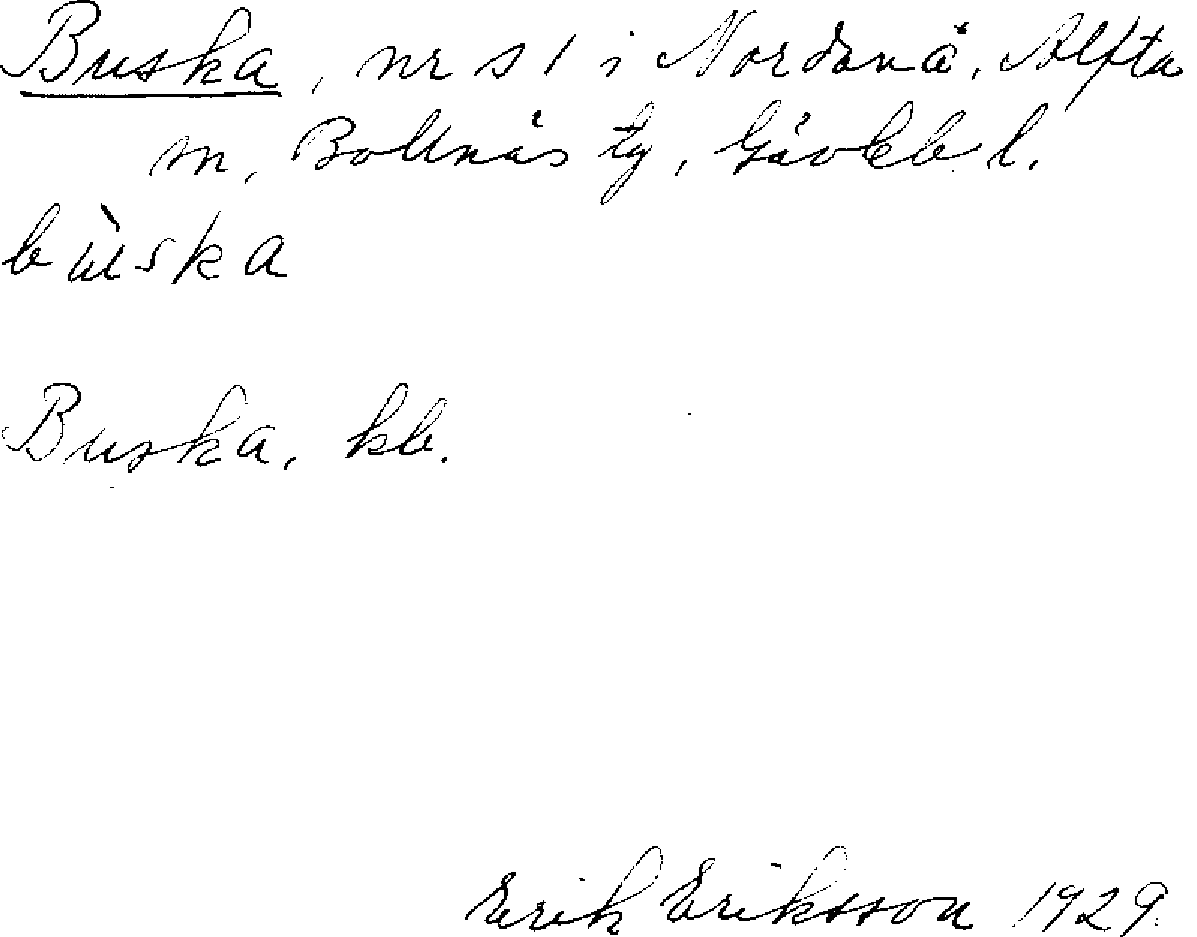 Buska, nr s 1 i Nordanå, Alfta
m, Bollnäs tg, Gävleb l.
bùska
Buska, kb.
Erik Eriksson 1929.